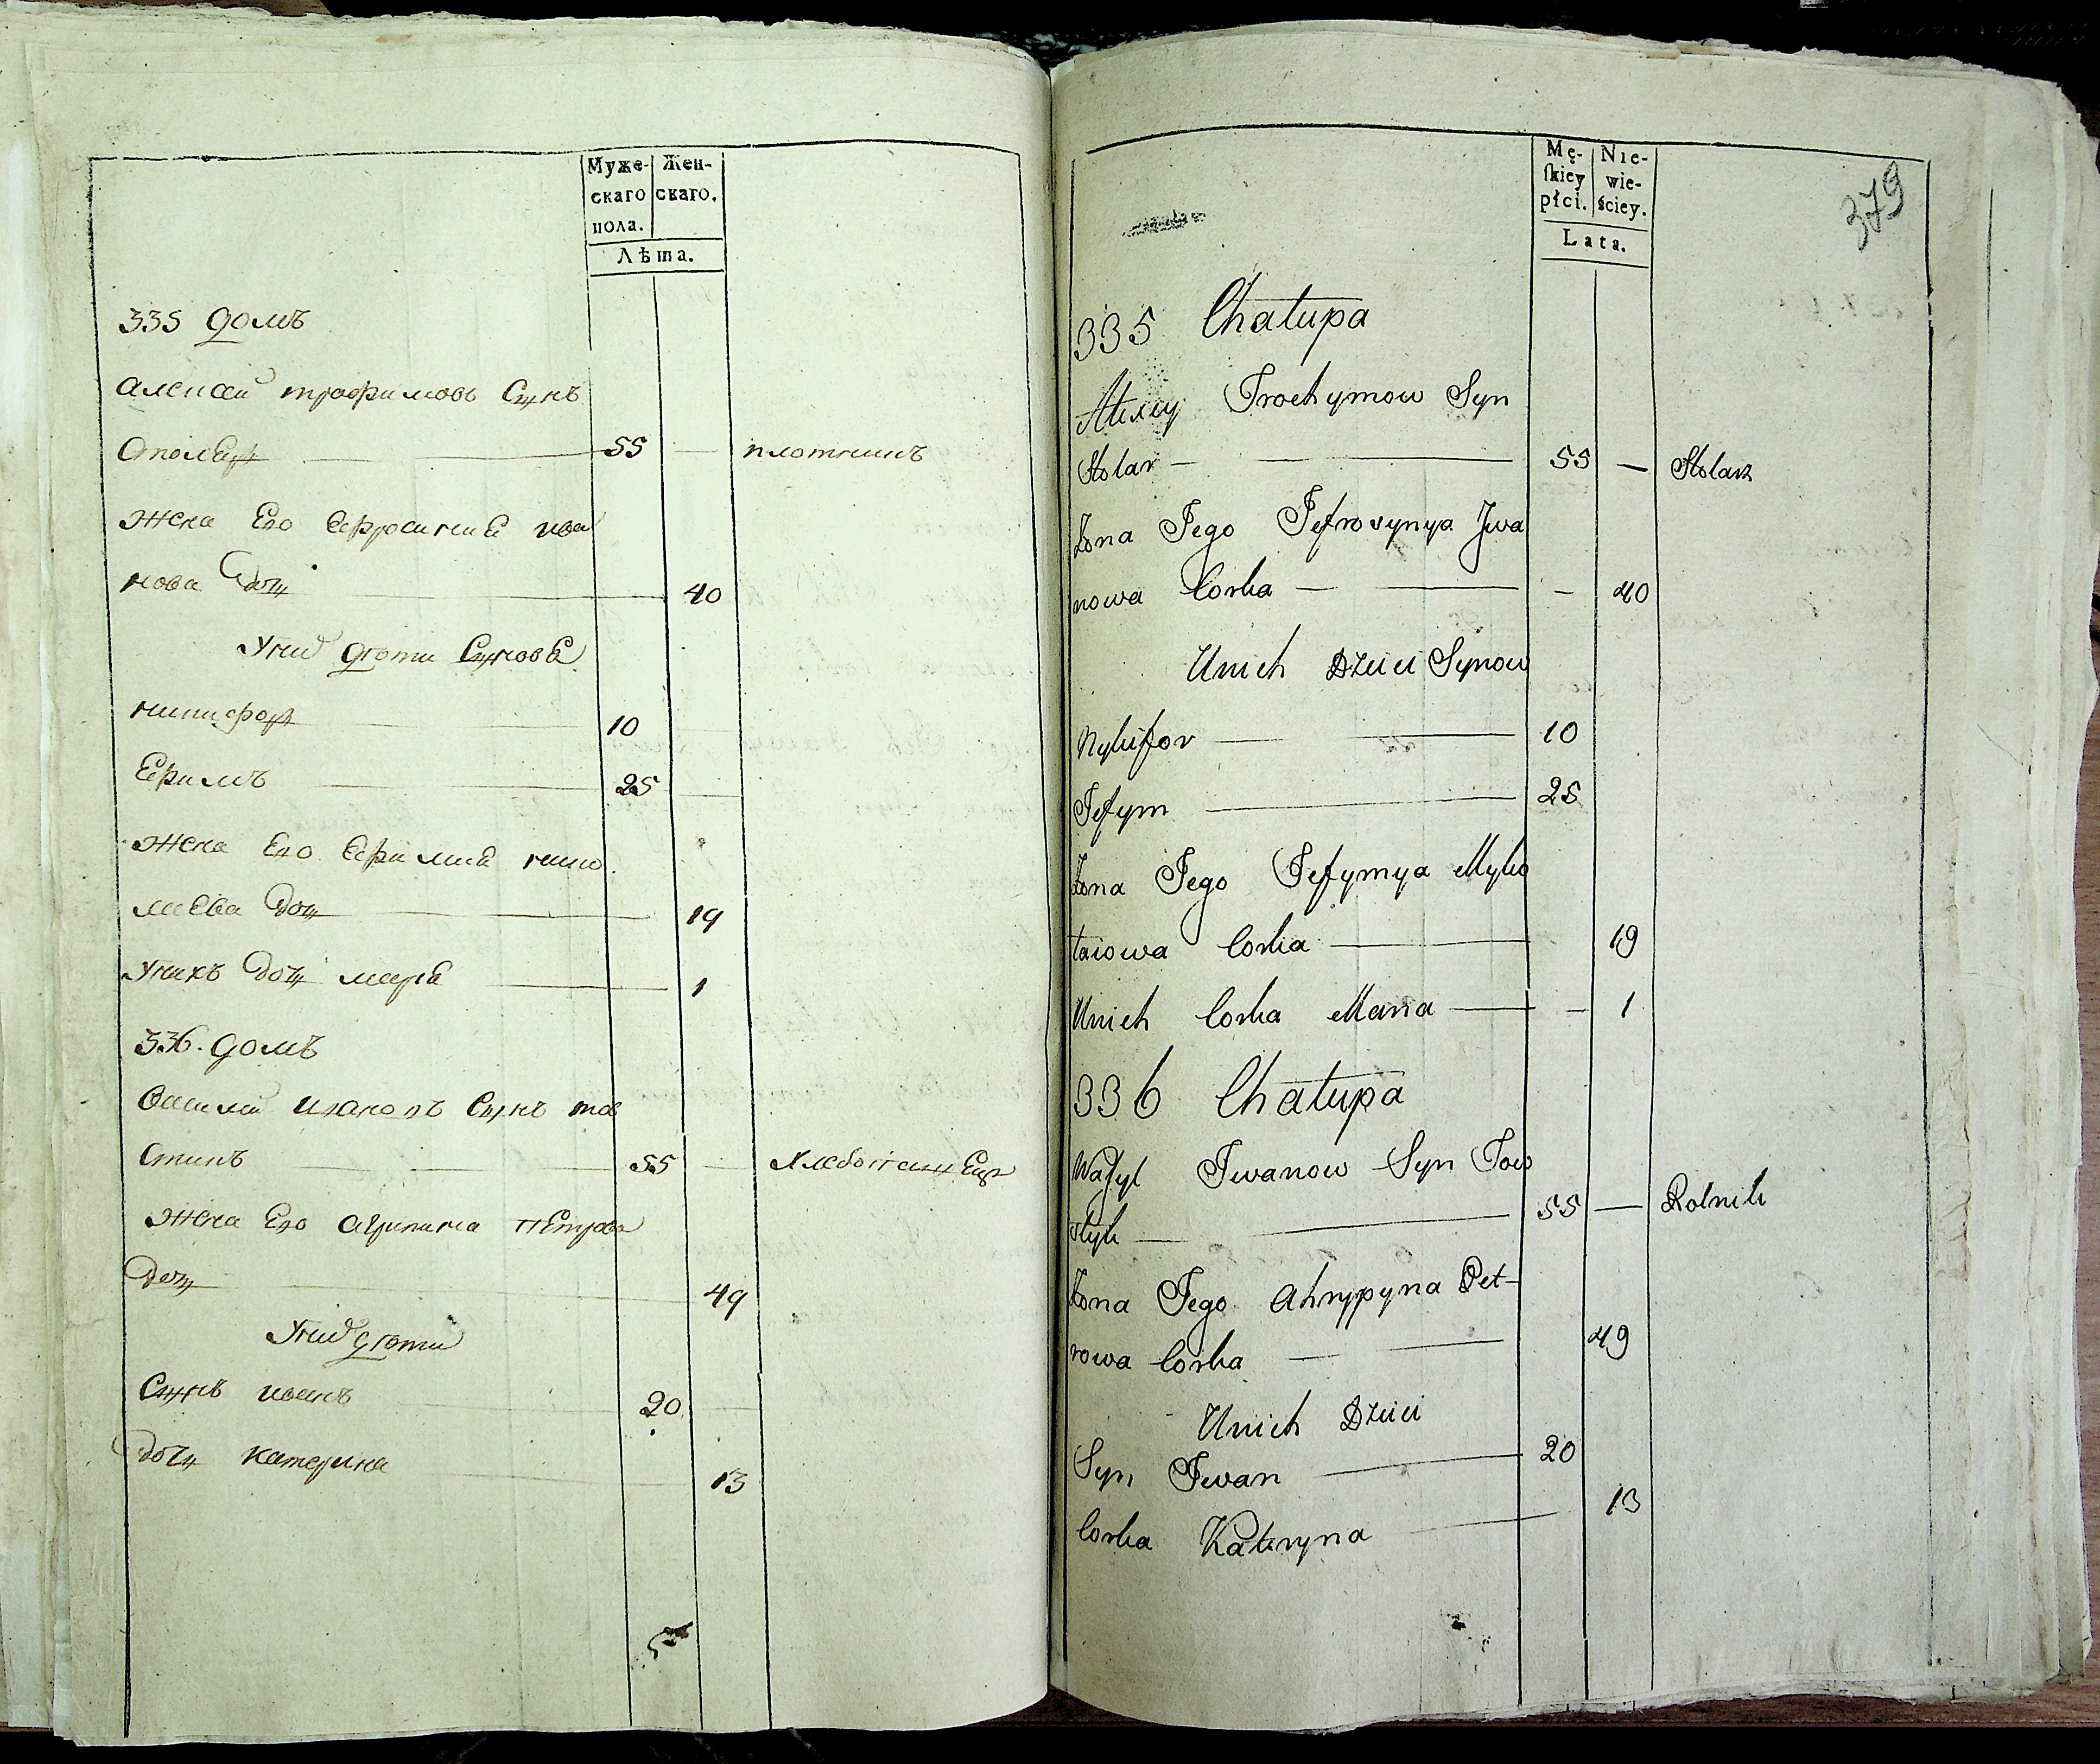 Муже-
скаго
пола.
Жен-
скаго.
Лѣта.
335 домъ
алексей трофимовъ Сынъ
Столяр 55 — плотникъ
жена Его Ефросиния ива
нова дочь 40
У них дети Сыновя
никифор 10
Ефимъ 25
жена Его Ефимия нико
лаева дочь 19
У нихъ дочь мария 1
336. домъ
Василий Иванов Сынъ тов
стикъ 55 — хлебопашец
жена Его агрипина петрова
дочь 49
У них дети
Сынъ иванъ 20
дочь катерина 13
Mę-
skiey
płci.
Nie-
wie-
ściey.
Lata.
379
335 Chałupa
Alexey Trochymow Syn
Stolar — 55 — Stolarz
Zona Jego Jefrosynya Jwa
nowa Corka — - 40
Unich Dzieci Synow
Nykifor — 10
Jefym — 25
Zona Jego Jefymya Myko
łaiowa Corka — 19
Unich Corka Maria — - 1
336 Chałupa
Wasyl Jwanow Syn Tow
styk — 55 — Rolnik
Zona Jego Ahrypyna Pet-
rowa Corka — 49
Unich Dzieci
Syn Jwan — 20
Corka Kateryna 13